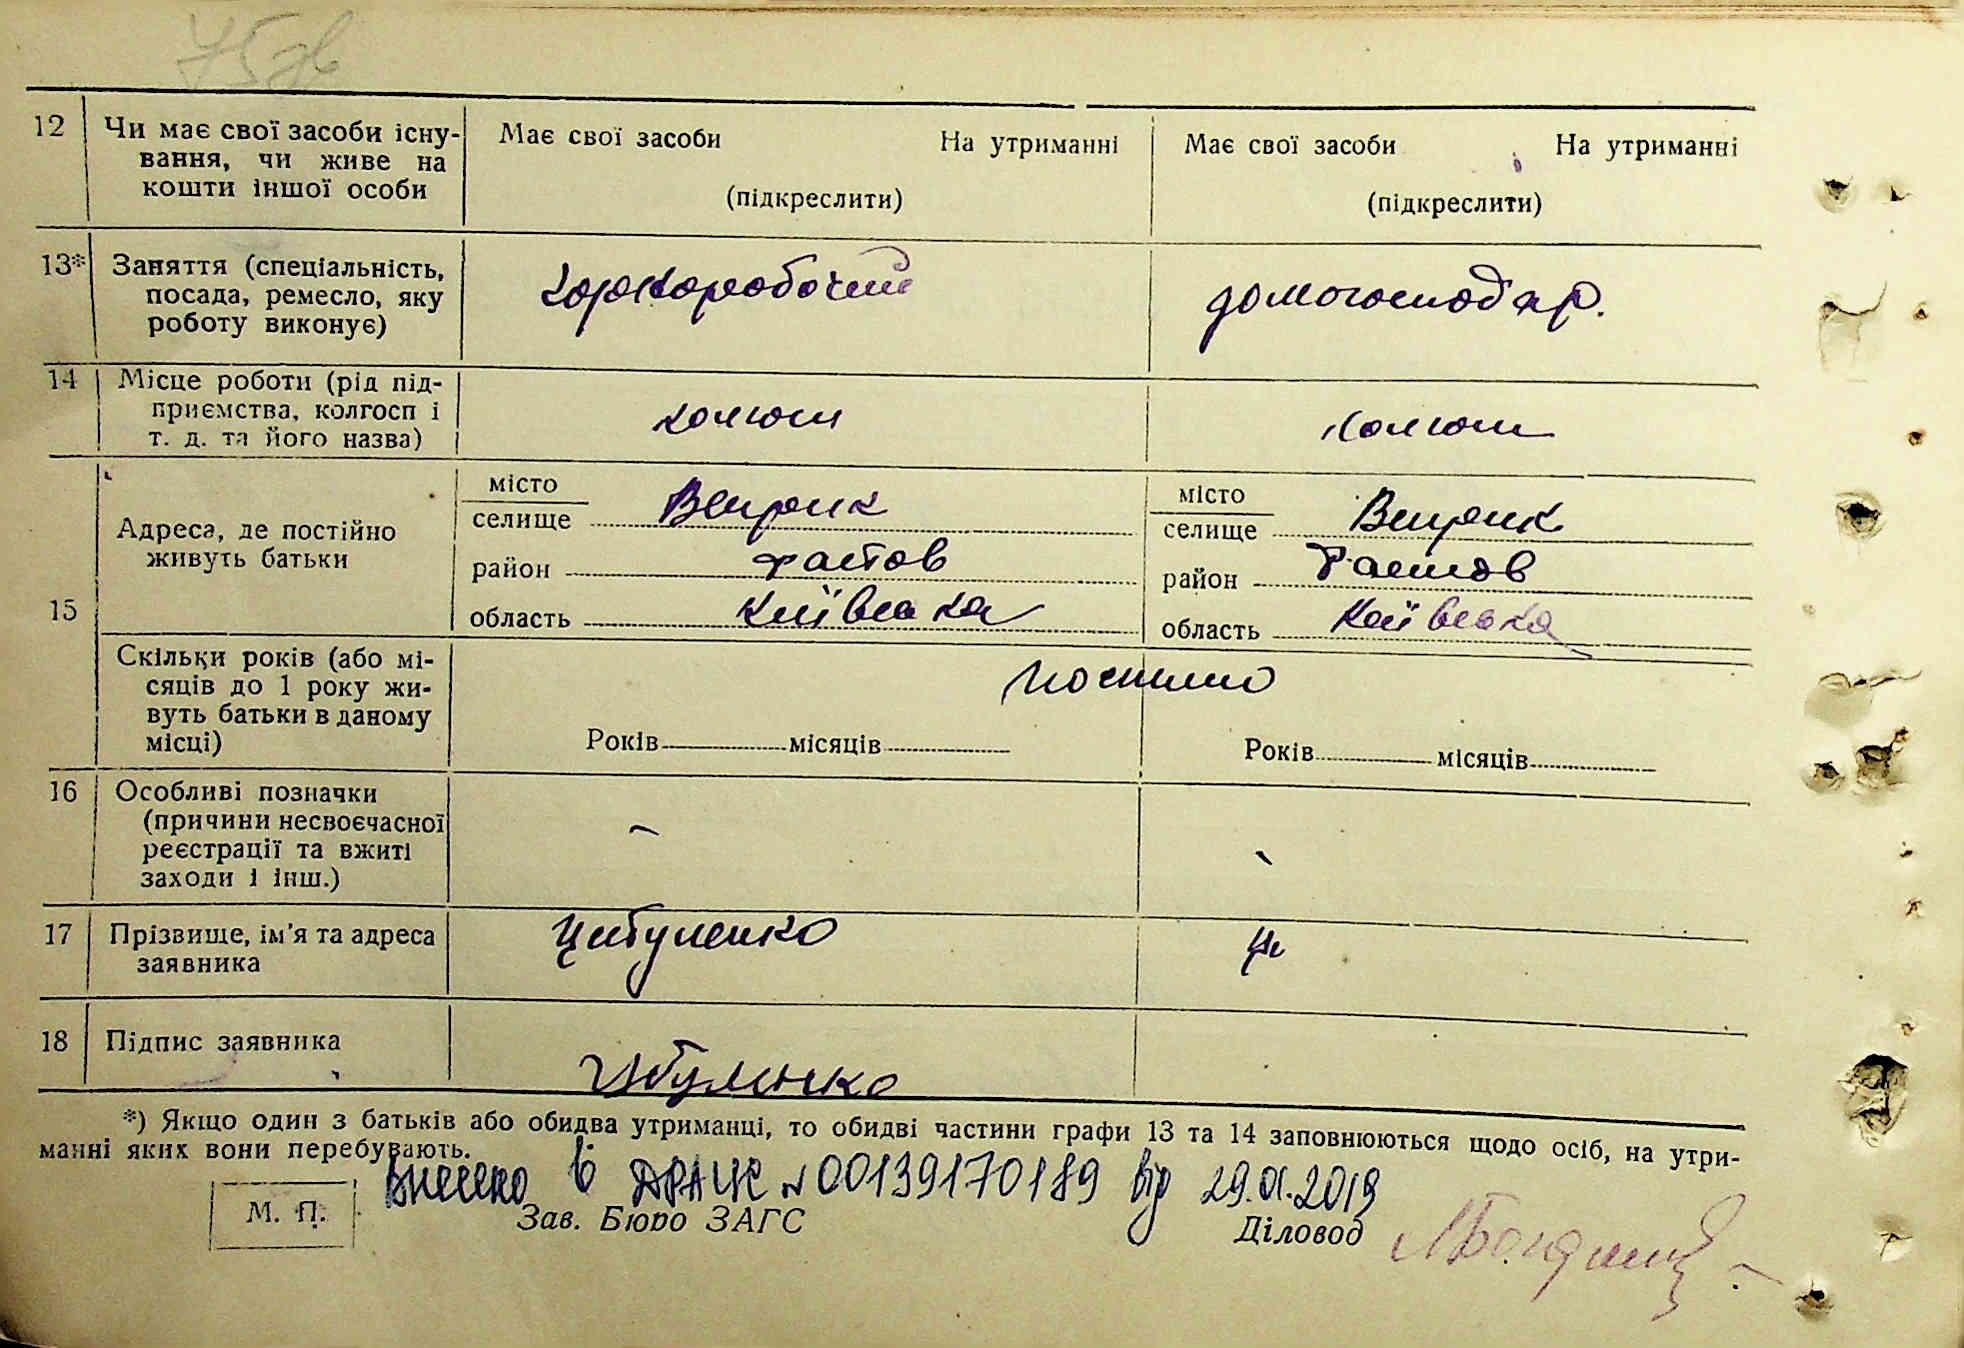 75 зв
12 Чи має свої засоби існу- Має свої засоби На утриманні Має свої засоби На утриманні
вання, чи живе на
кошти іншої особи (підкреслити) (підкреслити)
13* Заняття (спеціальність, домогосподар.
посада, ремесло, яку
роботу виконує)
14 Місце роботи (рід під-
приємства, колгосп і колгосп колгосп
т. д. та його назва)
місто місто
селище Веприк селище Веприк
Адреса, де постійно
живуть батьки
район Фастов район Фастов
15
область Київська область Київська
Скільки років (або мі- постійно
сяців до 1 року жи-
вуть батьки в даному
місці) Років місяців Років місяців
16 Особливі позначки
(причини несвоєчасної - -
реєстрації та вжиті
заходи і інш.)
17 Прізвище, ім'я та адреса Цибуленко
заявника
18 Підпис заявника Цибуленко
*) Якщо один з батьків або обидва утриманці, то обидві частини графи 13 та 14 заповнюються щодо осіб, на утри-
манні яких вони перебувають.
Внесено в ДРАЦС №00139170189 від 29.01.2019
М. П. Зав. Бюро ЗАГС Діловод